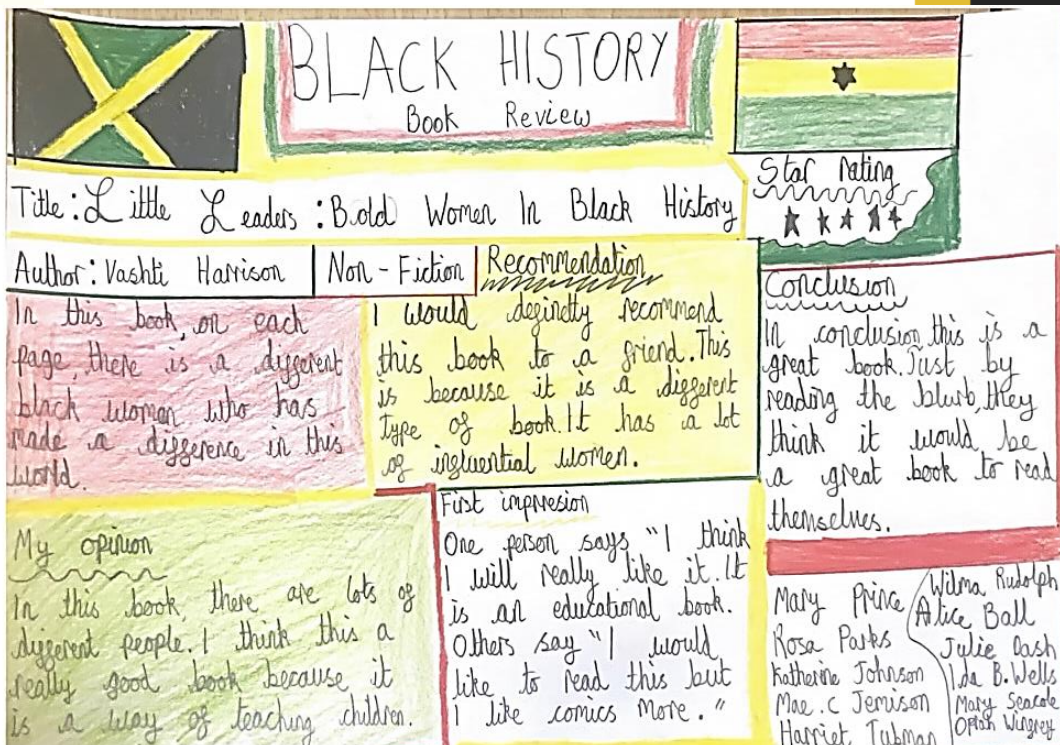 BLACK HISTORY
Book Review
Title: Little Leaders: Bold Women In Black History
Star rating
Author: Vashti Harrison
Non-Fiction
In this book, on each
page, there is a different
black woman who has
made a difference in this
world.
Recommendation
I would definetly recommend
this book to a friend. This
is because it is a different
type of book. It has a lot
of influential women.
Conclusion
In conclusion, this is a
great book. Just by
reading the blurb, they
think it would be
a great book to read
themselves.
My opinion
In this book, there are lots of
different people. I think this a
really good book because it
is a way of teaching children.
First impresion
One person says "I think
I will really like it. It
is an educational book.
Others say "I would
like to read this but
I like comics more."
Mary Prince
Rosa Parks
Katherine Johnson
Mae.c Jemison
Harriet Tubman
Wilma Rudolph
Alice Ball
Julie Dash
Ida B. Wells
Mary Seacole
Oprah Wingrey